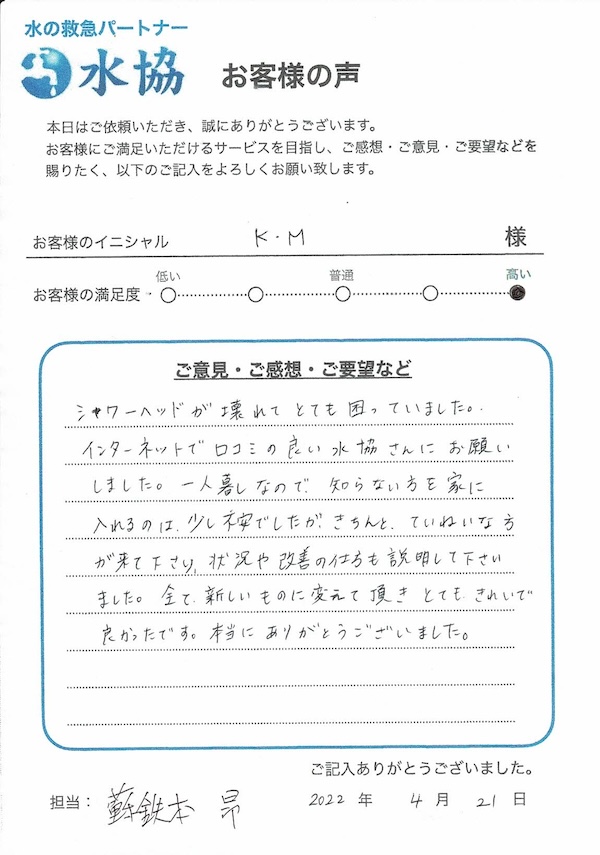 水の救急パートナー
水協 お客様の声
本日はご依頼いただき、誠にありがとうございます。
お客様にご満足いただけるサービスを目指し、ご感想・ご意見・ご要望などを
賜りたく、以下のご記入をよろしくお願い致します。
お客様のイニシャル K・M 様
低い 普通 高い
お客様の満足度
ご意見・ご感想・ご要望など
シャワーヘッドが壊れてとても困っていました。
インターネットで口コミの良い水協さんにお願い
しました。一人暮しなので、知らない方を家に
入れるのは、少し不安でしたが、きちんと、ていねいな方
が来て下さり、状況や改善の仕方も説明して下さい
ました。全て、新しいものに変えて頂きとても、きれいで
良かったです。本当にありがとうございました。
ご記入ありがとうございました。
担当： 鉄本 昴 2022 年 4 月 21 日